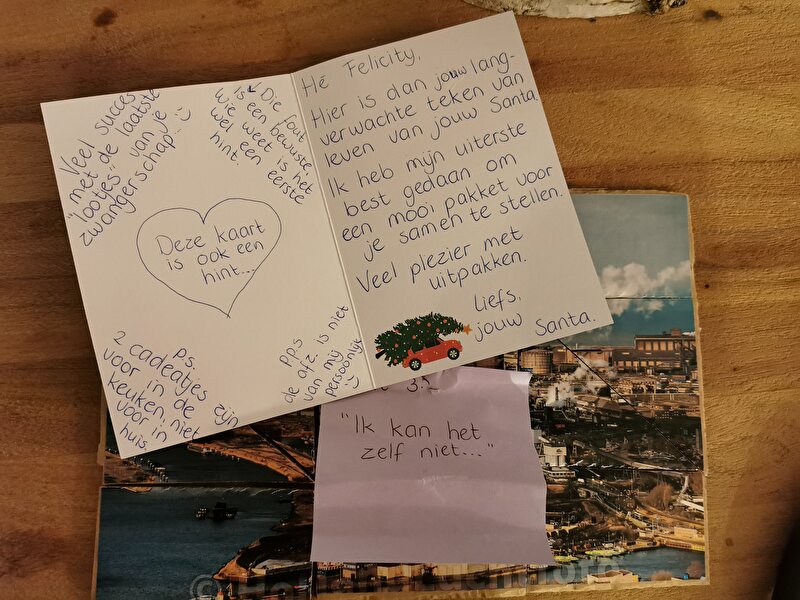 Veel succes
"met de laatste
"lootjes" van je
zwangerschap...
is Die fout
een bewuste
wie weet is het
wel een eerste
hint.
Deze kaart
is ook een
hint...
p.s.
2 cadeatjes zijn
voor in de
keuken, niet
voor in
huis
p.p.s
de afz. is niet
van mij
persoonlijk
Hé Felicity,
Hier is dan jouw lang-
verwachte teken van
leven van jouw Santa.
Ik heb mijn uiterste
best gedaan om
een mooi pakket voor
je samen te stellen.
Veel plezier met
uitpakken.
Liefs,
jouw Santa.
"Ik kan het
zelf niet..."